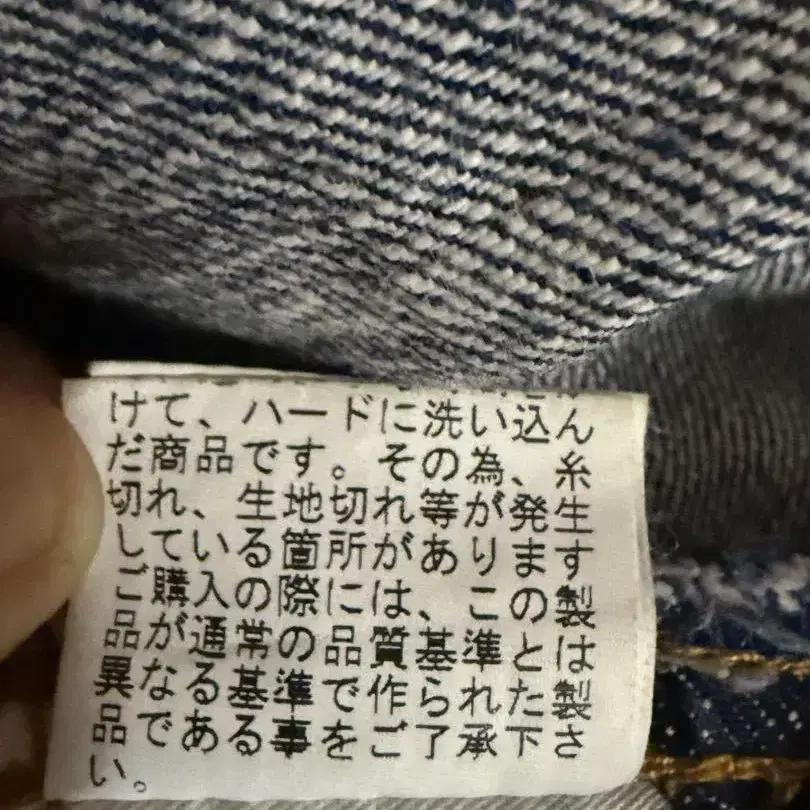 けて、ハードに洗い込ん
だ商品です。その為、糸
切れ、生地切れ等が発生
している箇所があります
ご購入の際には、この製
品が通常の品質基準とは
異なる基準で作られた製
品である事をご了承下さ
い。